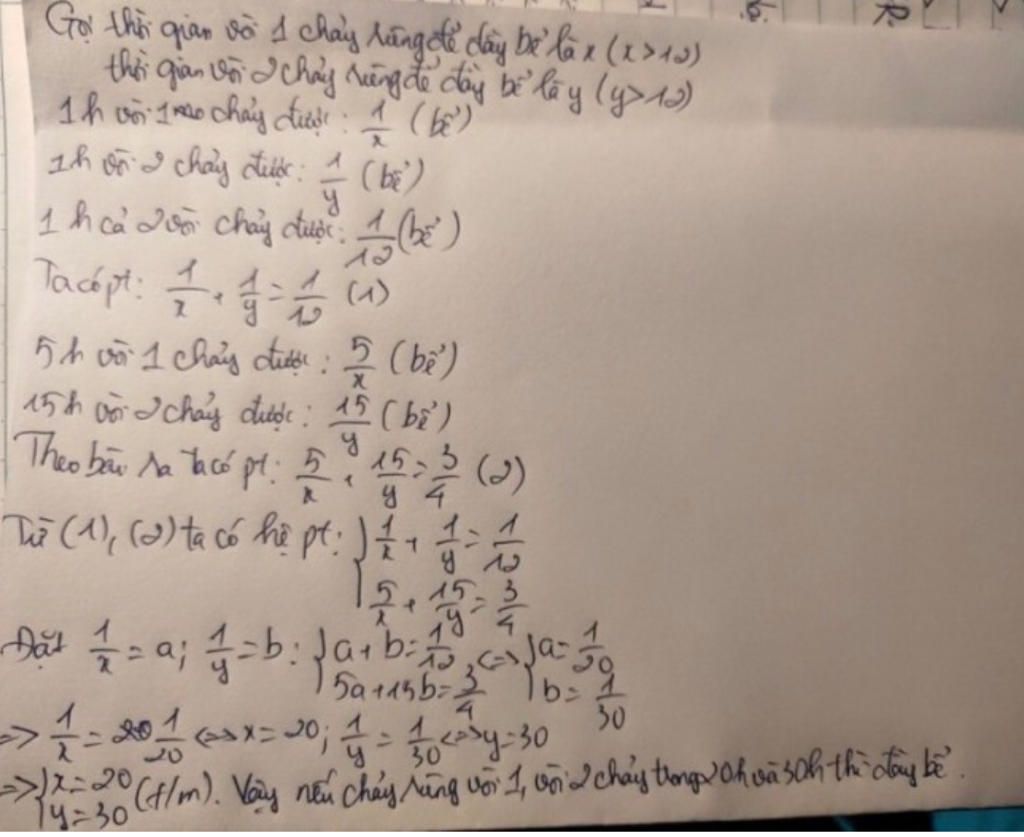 Gọi thời gian vòi 1 chảy riêng để đầy bể là x (x>12)
thời gian vòi 2 chảy riêng để đầy bể là y (y>12)
1h vòi 1 chảy được: 1/x (bể)
1h vòi 2 chảy được: 1/y (bể)
1h cả 2 vòi chảy được: 1/12 (bể)
Ta có pt: 1/x + 1/y = 1/12 (1)
5h vòi 1 chảy được: 5/x (bể)
15h vòi 2 chảy được: 15/y (bể)
Theo bài ra ta có pt: 5/x + 15/y = 3/4 (2)
Từ (1), (2) ta có hệ pt: { 1/x + 1/y = 1/12
5/x + 15/y = 3/4
Đặt 1/x = a; 1/y = b: { a + b = 1/12 <=> { a = 1/20
5a + 15b = 3/4 b = 1/30
=> 1/x = 1/20 <=> x = 20; 1/y = 1/30 <=> y = 30
=> { x = 20 (t/m). Vậy nếu chảy riêng vòi 1, vòi 2 chảy trong 20h và 30h thì đầy bể.
y = 30